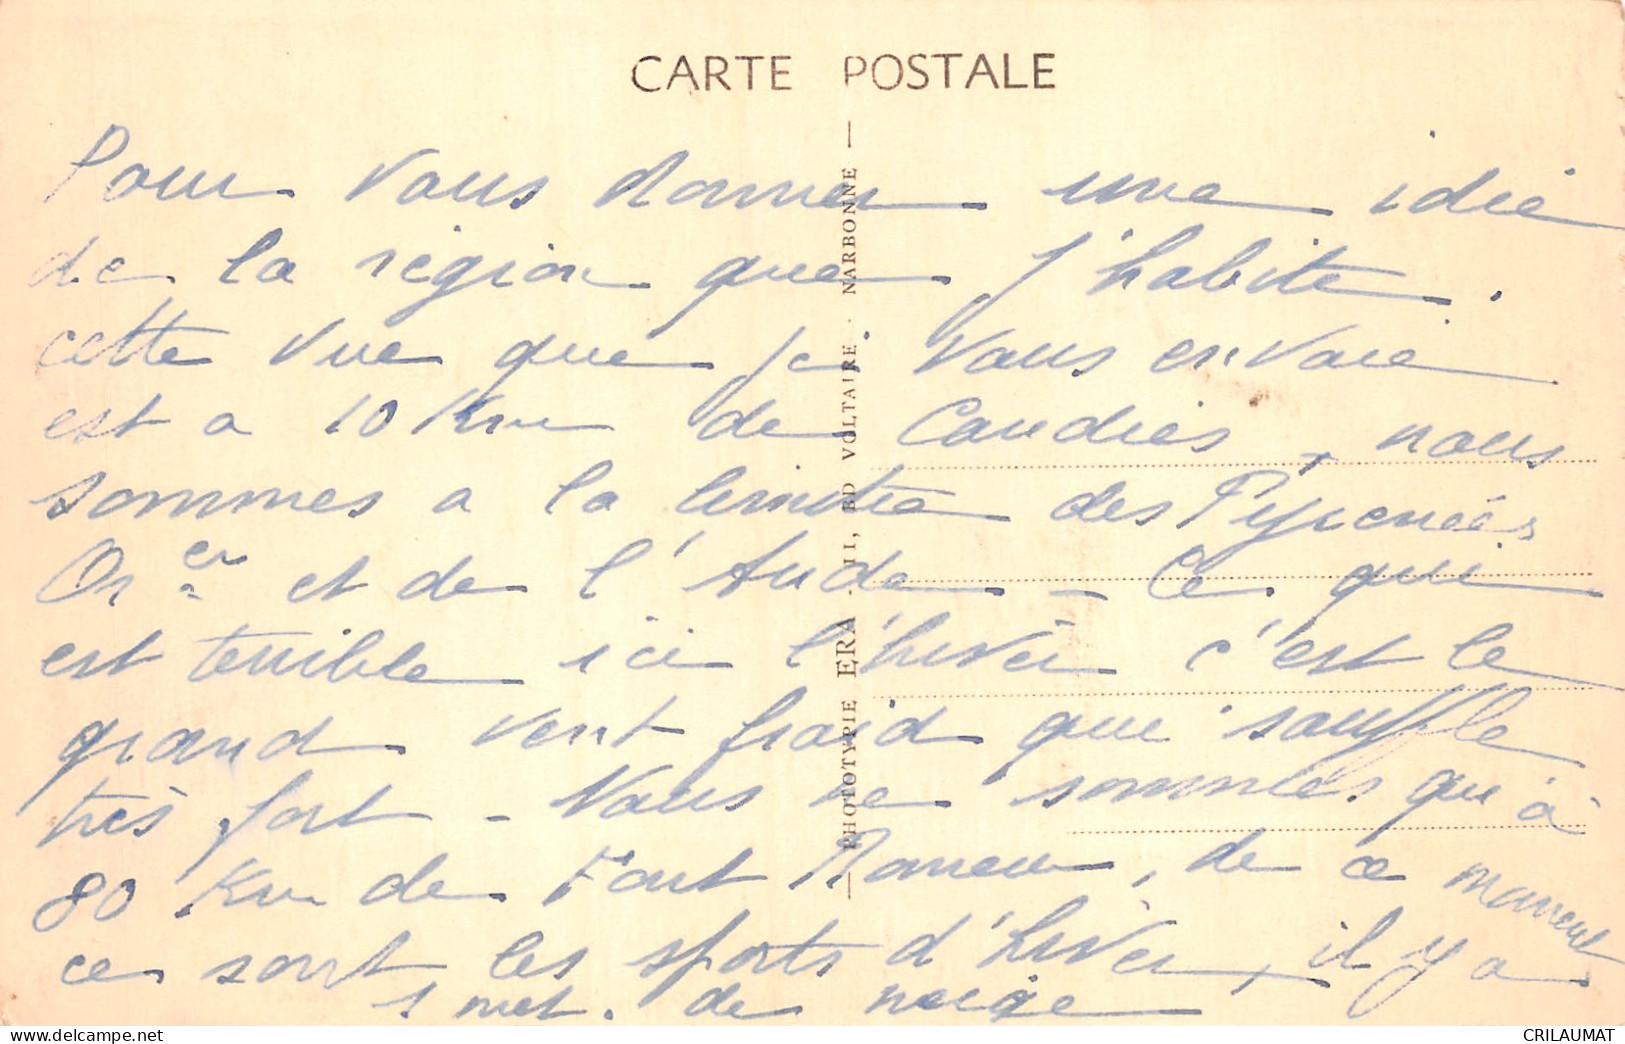 CARTE POSTALE
Pour vous donner une idée
de la région que j'habite.
cette vue que je vous envoie
est a 10 Km de Caudiès, nous
sommes a la limitre des Pyrenées
Or.es et de l'Aude - Ce qui
est terrible ici l'hiver c'est le
grand vent froid que souffle
très fort - Nous ne sommes qu'à
80 Km de Font Romeu, de ce moment
ce sont les sports d'hiver, il y a
1 met. de neige
PHOTOTYPIE ERA - 11, BD VOLTAIRE - NARBONNE
CRILAUMAT